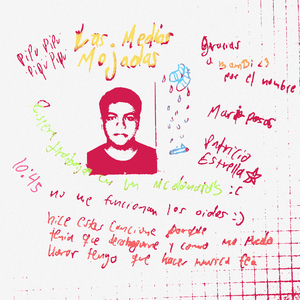 Pipu Pipu
Pipi Pipu
Las Medias
Mojadas
gracias
a Bambi <3
por el nombre
Mariposas
Patricio
Estrella
en un McDonalds :c
10:45
no me funcionan los oidos :)
hice estas canciones porque
tenia que desahogarme y como no puedo
llorar tengo que hacer musica fea